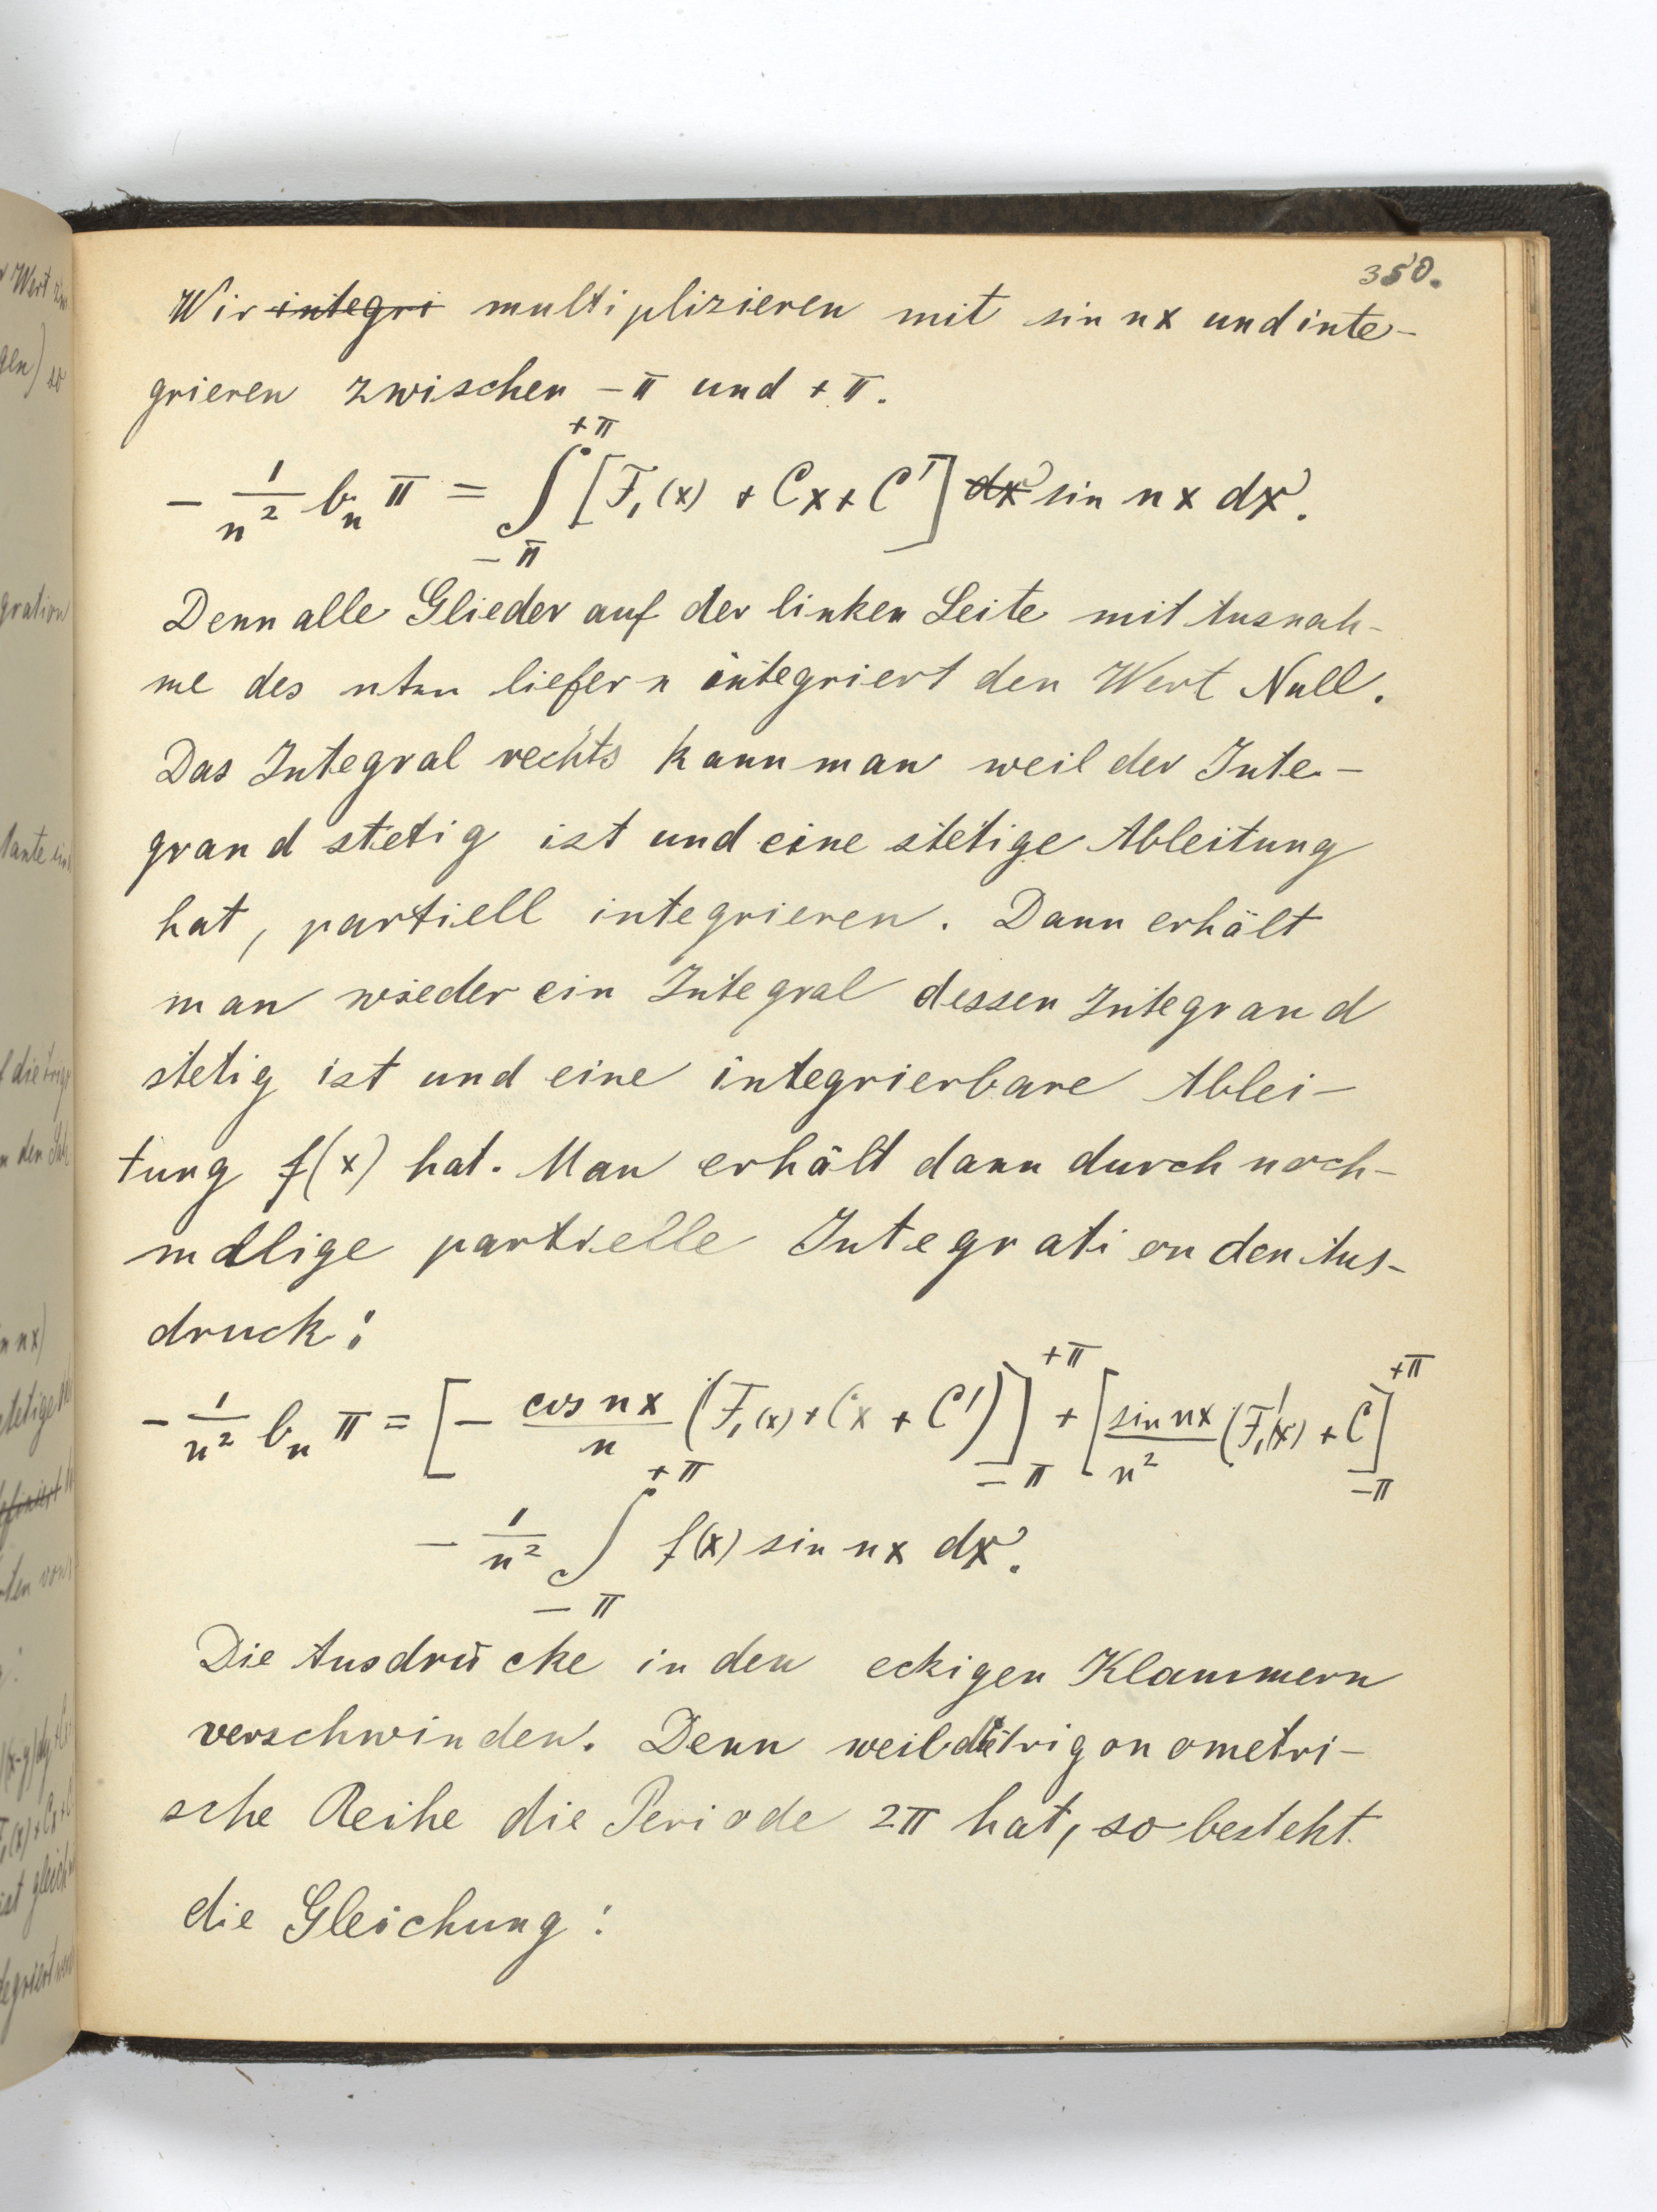 350.
Wir ~~integri~~ multiplizieren mit sin nx und inte-
grieren zwischen -π und +π.
$-\frac{1}{n^2} b_n \pi = \int_{-\pi}^{+\pi} [F_1(x) + Cx + C'] ~~dx~~ \sin nx \, dx.$
Denn alle Glieder auf der linken Seite mit Ausnah-
me des nten liefern integriert den Wert Null.
Das Integral rechts kann man weil der Inte-
grand stetig ist und eine stetige Ableitung
hat, partiell integrieren. Dann erhält
man wieder ein Integral dessen Integrand
stetig ist und eine integrierbare Ablei-
tung f(x) hat. Man erhält dann durch noch-
malige partielle Integration den Aus-
druck:
$-\frac{1}{n^2} b_n \pi = \left[-\frac{\cos nx}{n} (F_1(x) + Cx + C')\right]_{-\pi}^{+\pi} + \left[\frac{\sin nx}{n^2} (F_1'(x) + C\right]_{-\pi}^{+\pi}$
$-\frac{1}{n^2} \int_{-\pi}^{+\pi} f(x) \sin nx \, dx.$
Die Ausdrücke in den eckigen Klammern
verschwinden. Denn weil die trigonometri-
sche Reihe die Periode 2π hat, so besteht
die Gleichung: